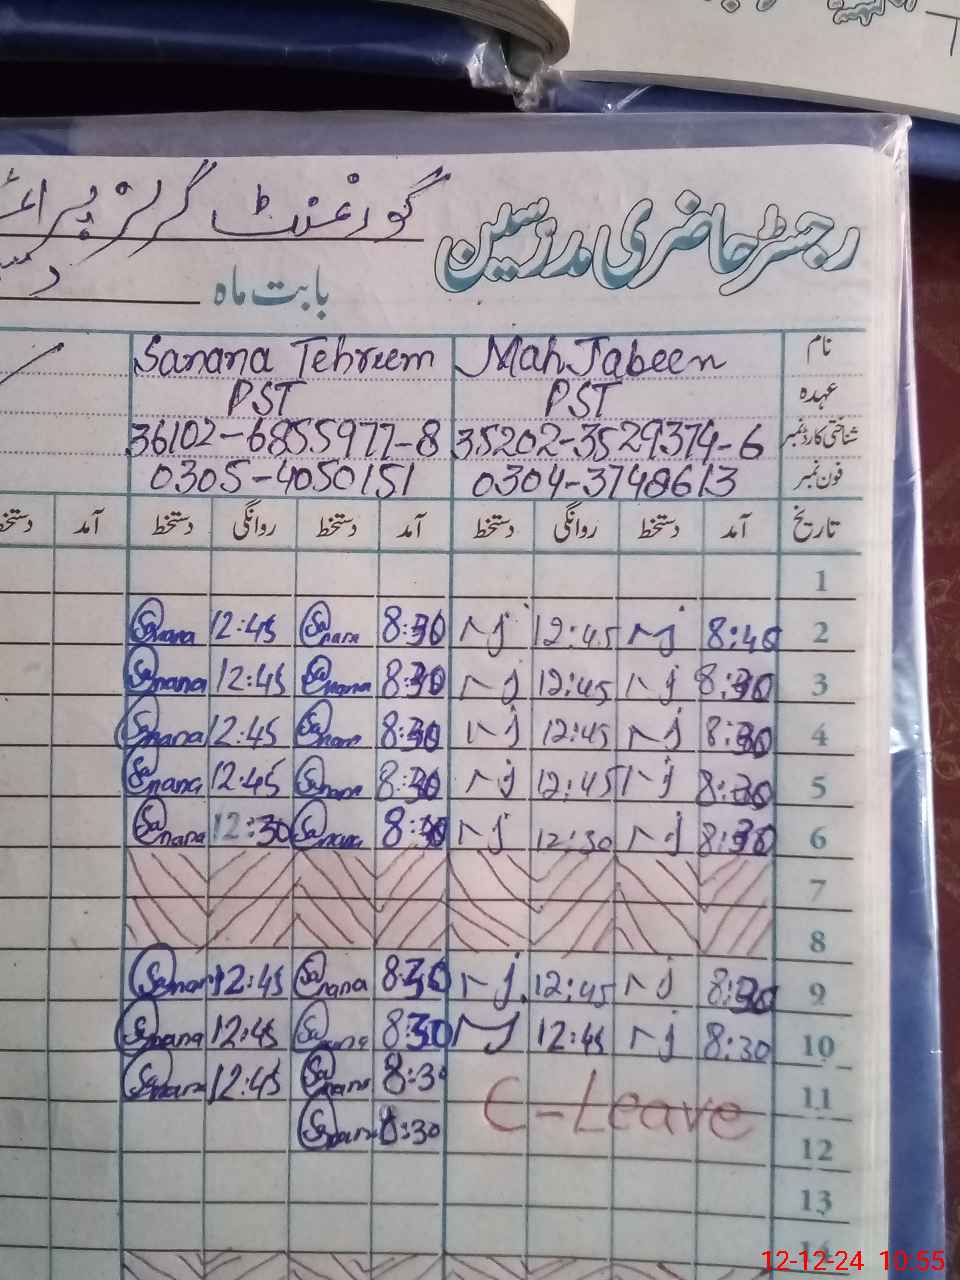 رجسٹر حاضری مدرسین گورنمنٹ گرلز
بابت ماہ
نام Mah Jabeen Sanana Tehreem
عہدہ PST PST
شناختی کارڈ نمبر 35202-3529374-6 36102-6855977-8
فون نمبر 0304-3748613 0305-4050151
تاریخ آمد دستخط روانگی دستخط آمد دستخط روانگی دستخط آمد
1
2 8:40 mj 12:45 mj 8:30 Sanana 12:45 Sanana
3 8:30 mj 12:45 mj 8:30 Sanana 12:45 Sanana
4 8:30 mj 12:45 mj 8:30 Sanana 12:45 Sanana
5 8:30 mj 12:45 mj 8:30 Sanana 12:45 Sanana
6 8:30 mj 12:30 mj 8:30 Sanana 12:30 Sanana
7
8
9 8:30 mj 12:45 mj 8:30 Sanana 12:45 Sanana
10 8:30 mj 12:45 mj 8:30 Sanana 12:45 Sanana
11 C-Leave 8:30 Sanana 12:45 Sanana
12 8:30 Sanana
13
14
12-12-24 10:55